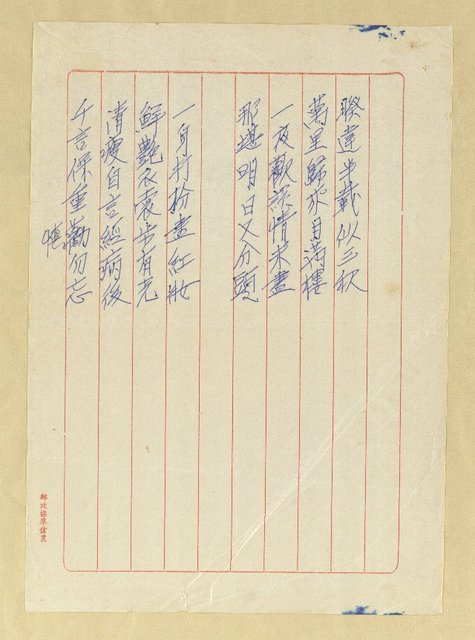 睽違半載似三秋
萬里歸來月滿樓
一夜歡深情未盡
那堪明日又分頭
一身打扮盡紅妝
鮮艷衣裳步有光
清瘦自言經病後
千言保重勸勿忘
郵政標準信箋